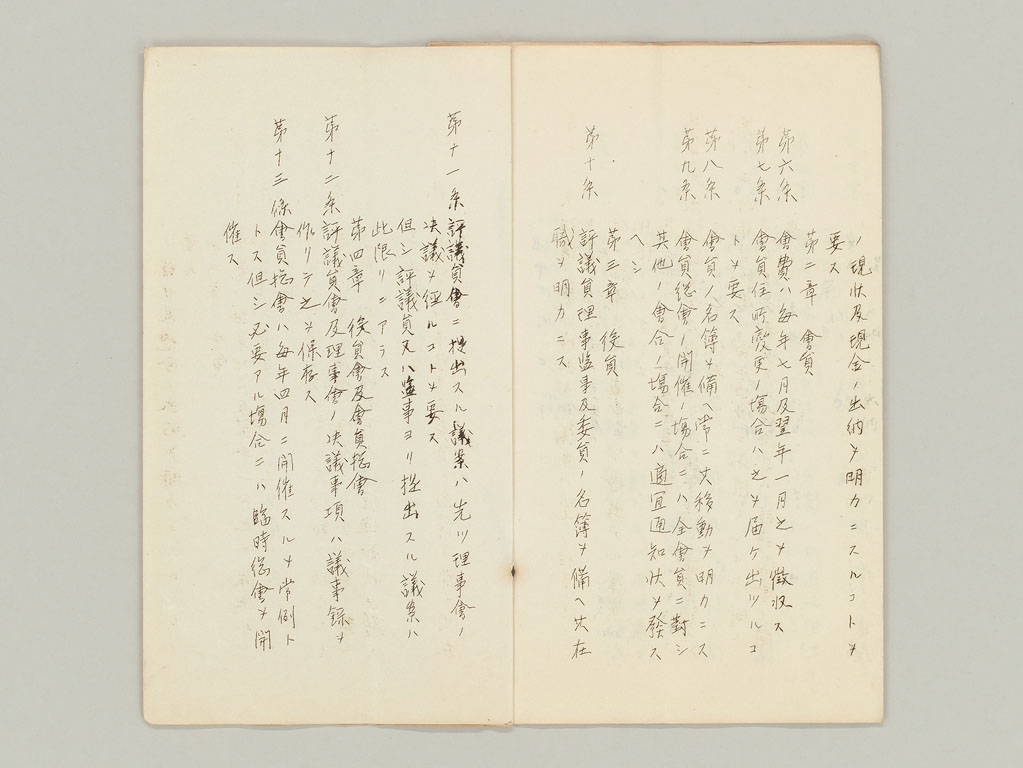 ノ現狀及現金ノ出納ヲ明カニスルコトヲ
要ス
第二章 會員
第六条 會費ハ毎年七月及翌年一月之ヲ徴収ス
第七条 會員住所變更ノ場合ハ之ヲ届ケ出ツルコ
トヲ要ス
第八条 會員ノ名簿ヲ備ヘ常ニ其移動ヲ明カニス
第九条 會員総會ノ開催ノ場合ニハ全會員ニ對シ
其他ノ會合ノ場合ニハ適宜通知状ヲ發ス
ヘシ
第三章 役員
第十条 評議員理事監事及委員ノ名簿ヲ備ヘ其在
職ヲ明カニス
第十一条 評議員會ニ提出スル議案ハ先ツ理事會ノ
決議ヲ經ルコトヲ要ス
但シ評議員又ハ監事ヨリ提出スル議案ハ
此限リニアラス
第四章 役員會及會員総會
第十二条 評議員會及理事會ノ決議事項ハ議事録ヲ
作リテ之ヲ保存ス
第十三條 會員総會ハ毎年四月ニ開催スルヲ常例ト
トス但シ必要アル場合ニハ臨時総會ヲ開
催ス